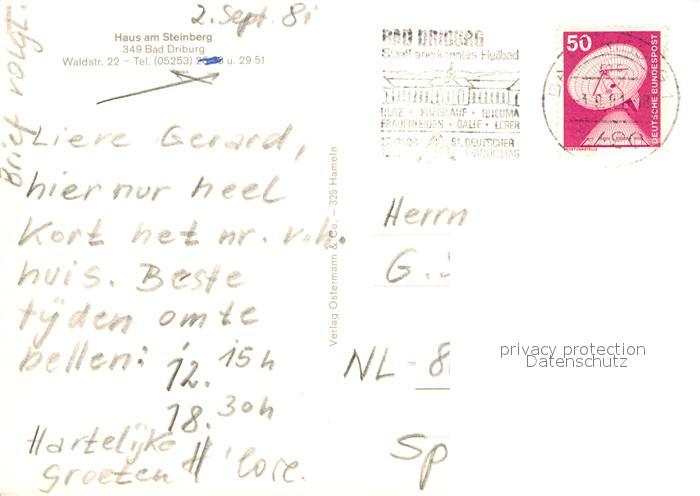 2. Sept. 81
Haus am Steinberg
349 Bad Driburg
Waldstr. 22 – Tel. (05253) u. 29 51
Brief volgt.
Lieve Gerard,
hier nur heel
Kort het nr. v.h.
huis. Beste
tyden om te
bellen: 12.15h
18.30h
Hartelijke
groeten
Verlag Ostermann & Co. – 325 Hameln
BAD DRIBURG
Staatl. anerkanntes Heilbad
HERZ · KREISLAUF · RHEUMA
FRAUENLEIDEN · GALLE · LEBER
81. DEUTSCHER
WANDERTAG
50
DEUTSCHE BUNDESPOST
Herrn
G.
NL - 8
Sp
privacy protection
Datenschutz